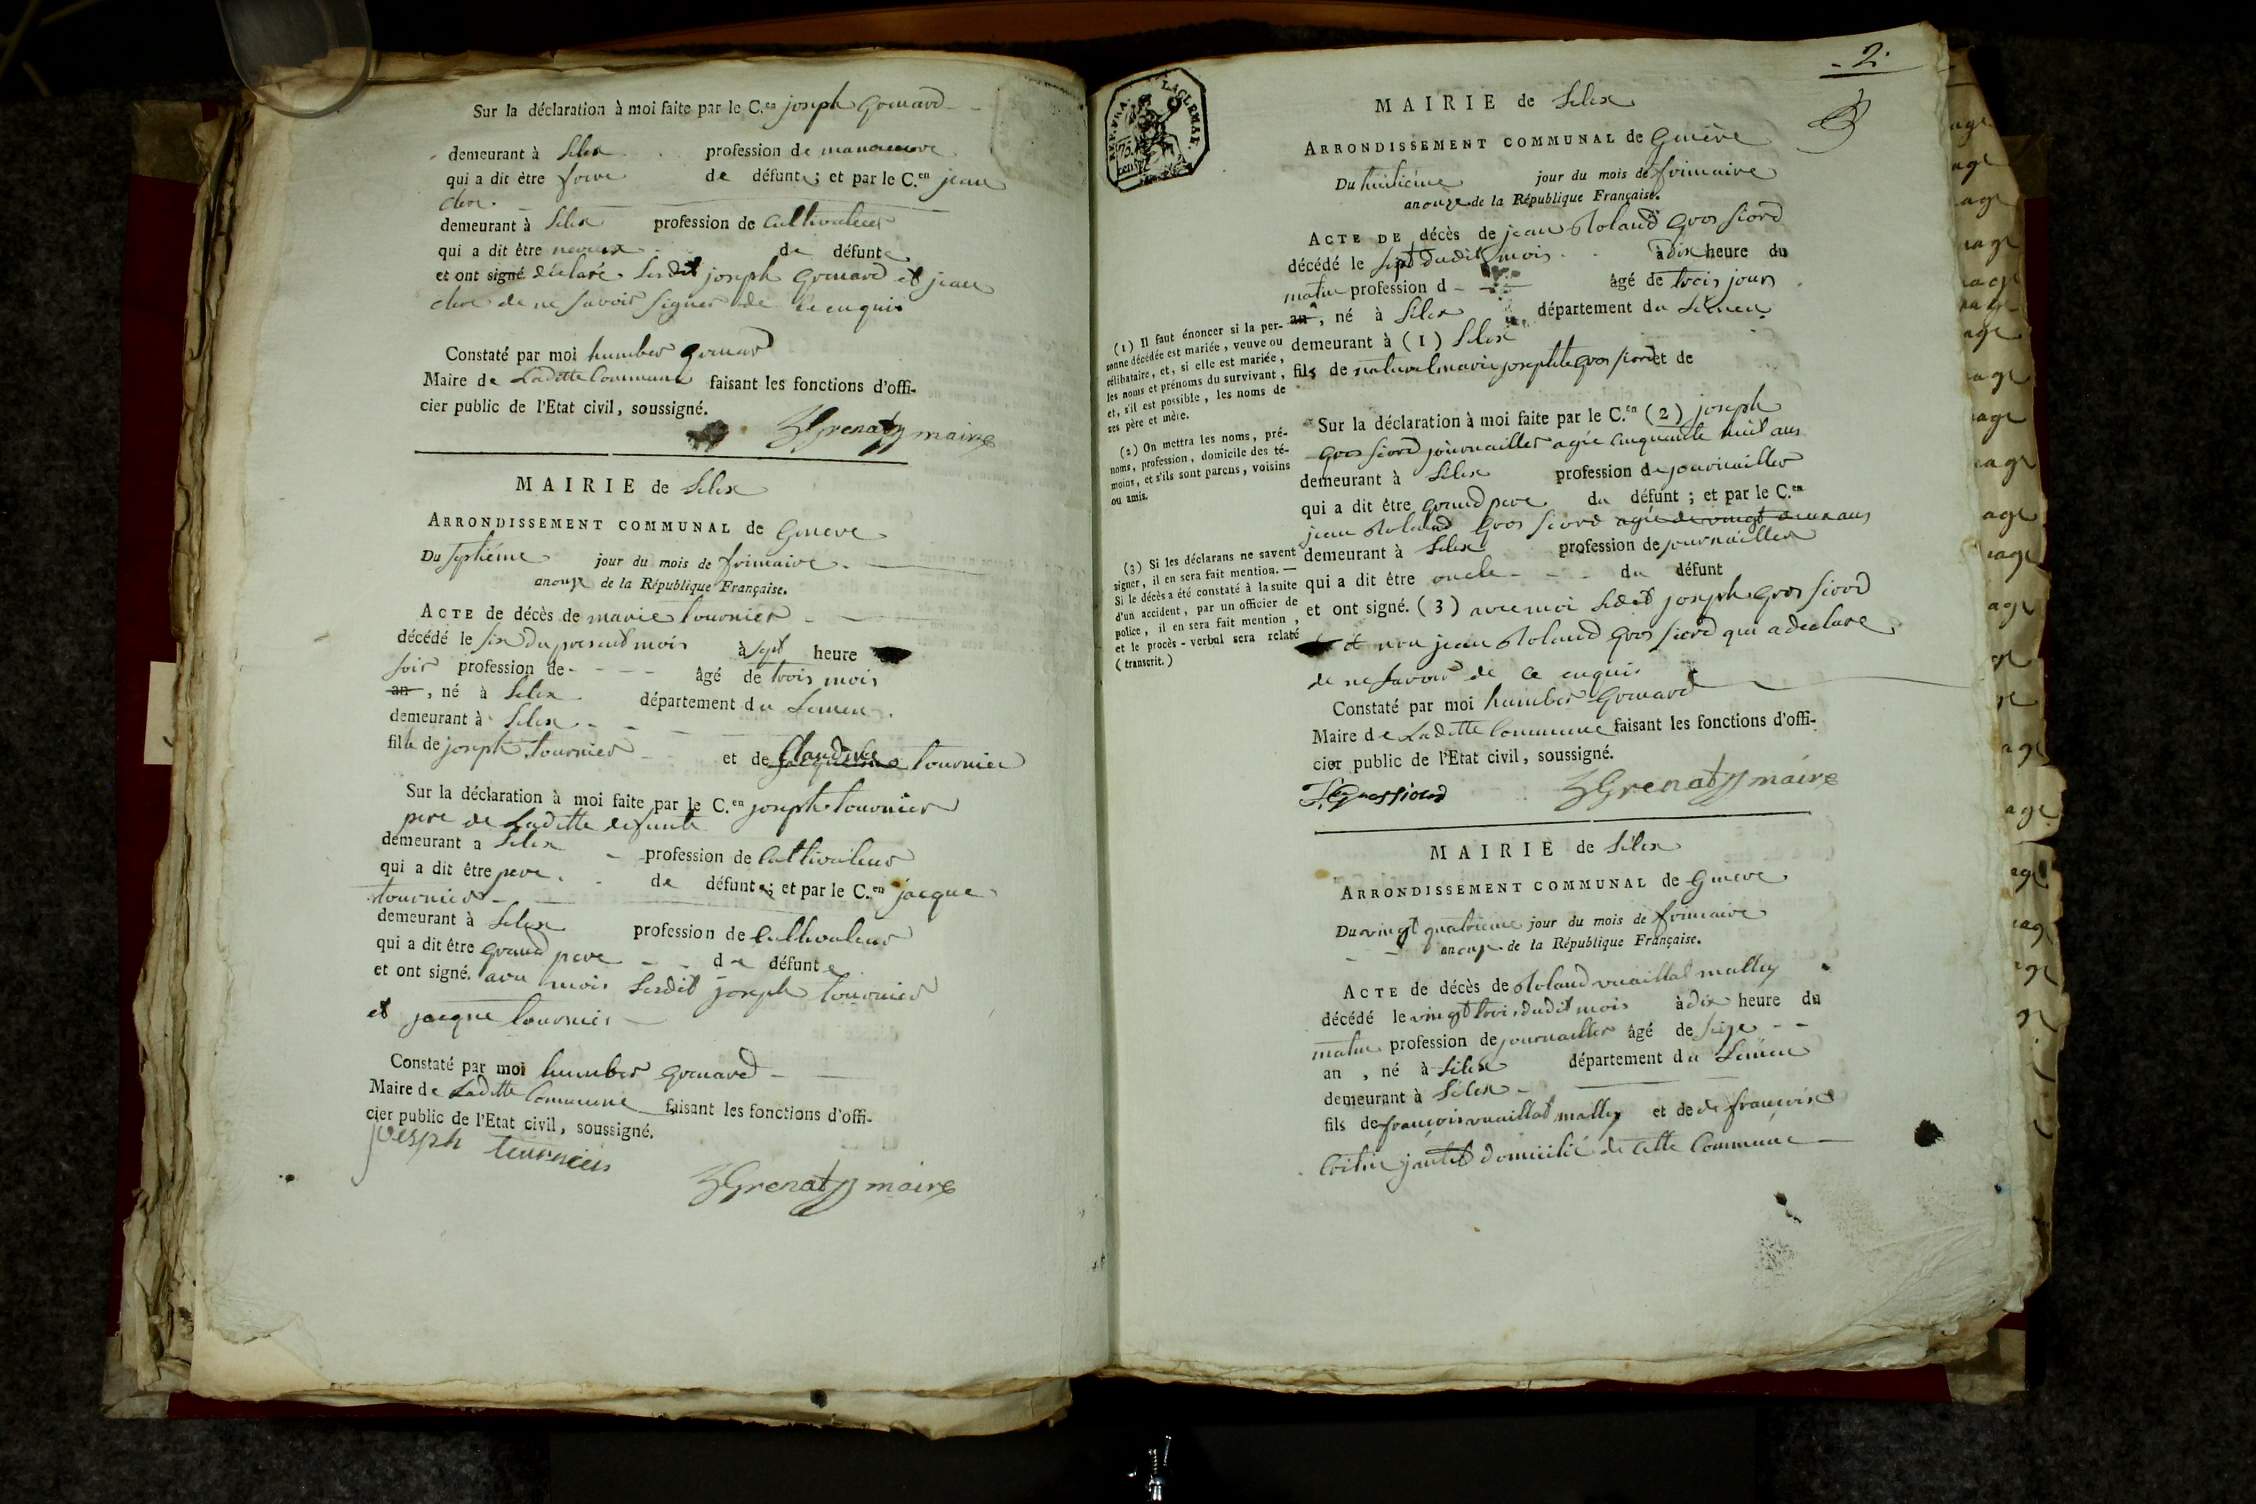 Sur la déclaration à moi faite par le C.en joseph Grenard
demeurant à Silex profession de manoeuvre
qui a dit être de défunte; et par le C.en jean
demeurant à Silex profession de Cultivateur
qui a dit être neveux de défunte
et ont signé déclaré Lesdit joseph Grenard et jean
de ne savoir signer de ce enquis
Constaté par moi humber Grenard
Maire de Laditte Commune faisant les fonctions d'offi-
cier public de l'Etat civil, soussigné.
Grenat maire
MAIRIE de Silex
ARRONDISSEMENT COMMUNAL de Geneve
Du septiéme jour du mois de frimaire
an onze de la République Française.
ACTE de décès de marie tournier
décédé le six du present mois à sept heure
soir profession de âgé de trois mois
an, né à Silex département du Leman
demeurant à Silex
fille de joseph tournier et de Claudine tournier
Sur la déclaration à moi faite par le C.en joseph tournier
pere de Laditte defunte
demeurant a Silex profession de Cultivateur
qui a dit être pere de défunte; et par le C.en jacque
tournier
demeurant à Silex profession de Cultivateur
qui a dit être grand pere de défunte
et ont signé. avec moi Lesdit joseph tournier
et jacque tournier
Constaté par moi humber Grenard
Maire de Laditte Commune faisant les fonctions d'offi-
cier public de l'Etat civil, soussigné.
joesph tournier
Grenat maire
2.
RÉP. FRA.
75 cent.
MAIRIE de Silex
ARRONDISSEMENT COMMUNAL de Genève
Du huitiéme jour du mois de frimaire
an onze de la République Française.
ACTE DE décès de jean Roland Gros fiord
décédé le sept dudit mois à dix heure du
matin profession d âgé de trois jours
an, né à Silex département du Leman
demeurant à (1) Silex
fils de naturel marie josephte Gros fiord et de
Sur la déclaration à moi faite par le C.en (2) joseph
Gros fiord journailler agée cinquante huit ans
demeurant à Silex profession de journailler
qui a dit être grand pere du défunt; et par le C.en
jean Roland Gros fiord agée de vingt deux ans
demeurant à Silex profession de journailler
qui a dit être oncle du défunt
et ont signé. (3) avec moi Ledit joseph Gros fiord
et non jean Roland Gros fiord qui a declare
de ne savoir de ce enquis
Constaté par moi humber Grenard
Maire de Laditte Commune faisant les fonctions d'offi-
cier public de l'Etat civil, soussigné.
Grosfiord Grenat maire
(1) Il faut énoncer si la per-
sonne décédée est mariée, veuve ou
célibataire, et, si elle est mariée,
les noms et prénoms du survivant,
et, s'il est possible, les noms de
ses père et mère.
(2) On mettra les noms, pré-
noms, profession, domicile des té-
moins, et s'ils sont parens, voisins
ou amis.
(3) Si les déclarans ne savent
signer, il en sera fait mention. —
Si le décès a été constaté à la suite
d'un accident, par un officier de
police, il en sera fait mention,
et le procès-verbal sera relaté
(transcrit.)
MAIRIE de Silex
ARRONDISSEMENT COMMUNAL de Geneve
Du vingt quatrieme jour du mois de frimaire
an onze de la République Française.
ACTE de décès de Roland vuaillat malley
décédé le vingt trois dudit mois à dix heure du
matin profession de journailler âgé de seize
an, né à Silex département du Leman
demeurant à Silex
fils de françois vuaillat malley et de de françoise
domicilié de cette Commune